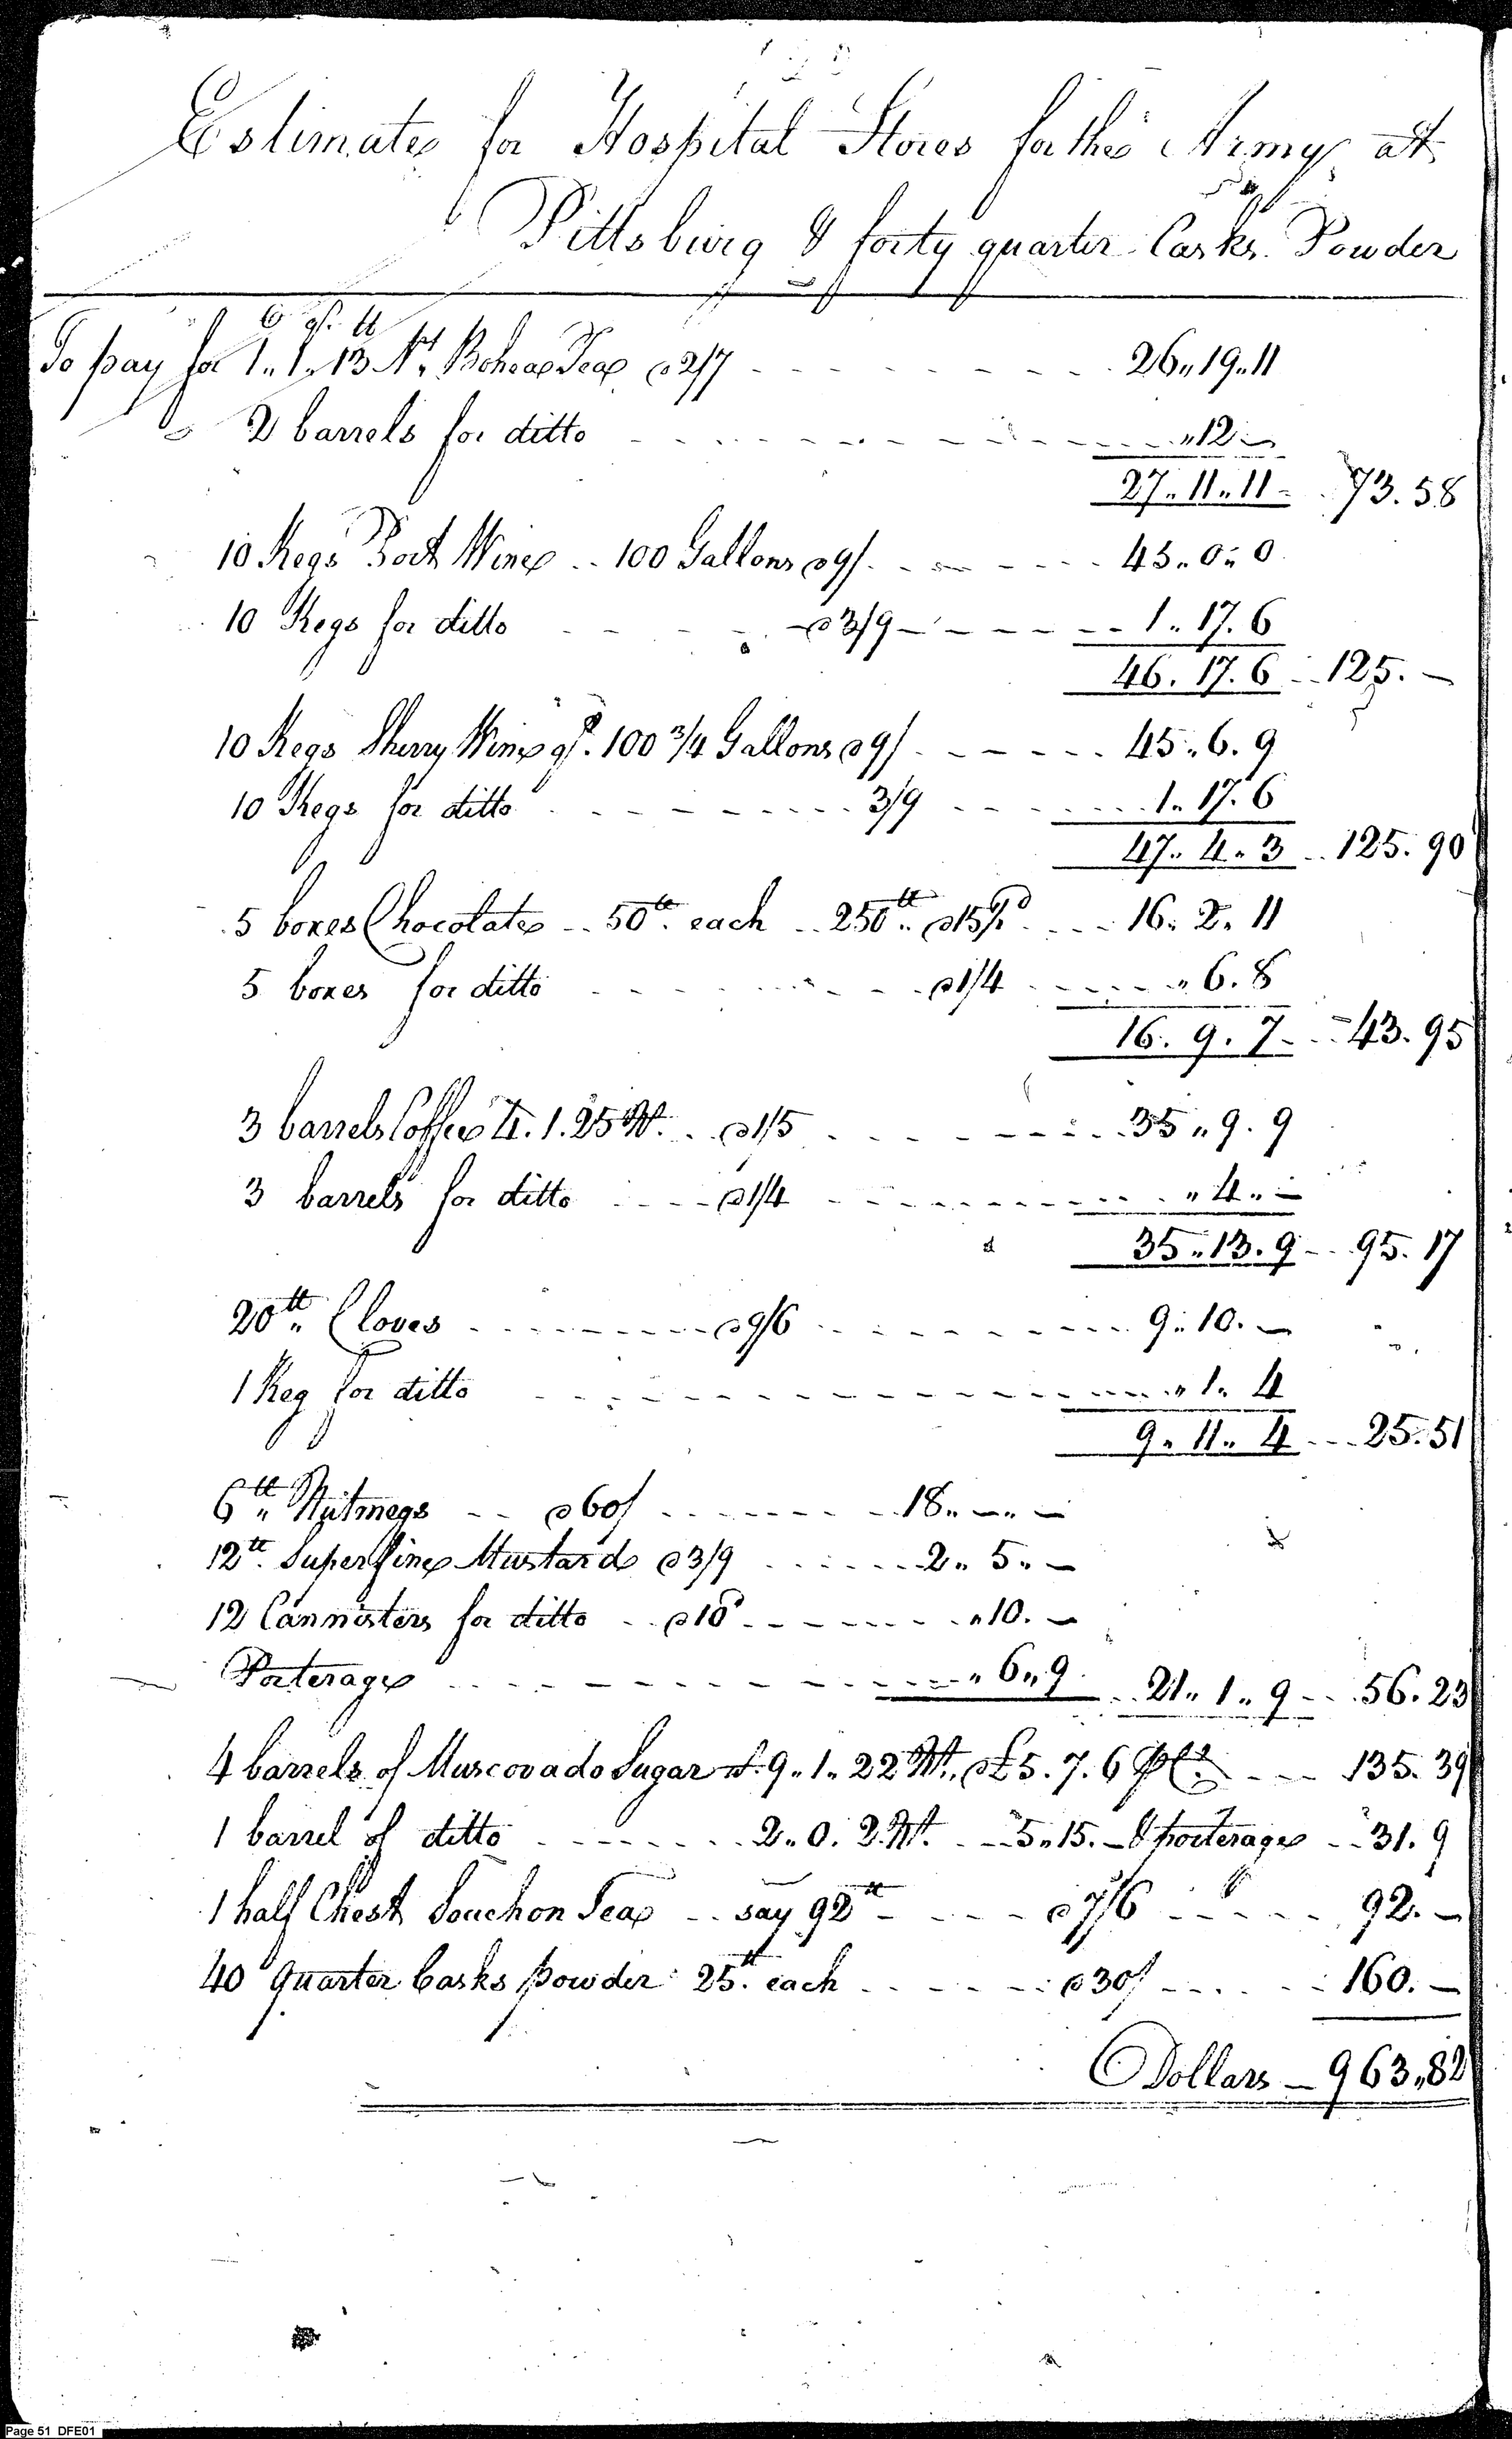 Estimate for Hospital Stores for the Army at
Pittsburg & forty quarter Casks Powder
C qr. lb
To pay for 1..1..13 Nt. Bohea Tea @ 2/7 26..19..11
2 barrels for ditto ..12..—
27..11..11 73.58
10 Kegs Port Wine .. 100 Gallons @ 9/ 45..0..0
10 Kegs for ditto @ 3/9 1..17.6
46.17.6 125.—
10 Kegs Sherry Wine qt. 100 3/4 Gallons @ 9/ 45..6.9
10 Kegs for ditto 3/9 1..17.6
47..4..3 125.90
5 boxes Chocolate .. 50lb. each .. 250lb.. @ 15½d 16..2..11
5 boxes for ditto @ 1/4 ..6.8
16.9.7 43.95
3 barrels Coffee 4.1.25 Nt. @ 1/5 35..9.9
3 barrels for ditto @ 1/4 ..4..—
35..13.9 95.17
20lb.. Cloves @ 9/6 9..10.—
1 Keg for ditto ..1..4
9..11..4 25.51
6lb.. Nutmegs @ 60/ 18..—..—
12lb. Superfine Mustard @ 3/9 2..5..—
12 Cannisters for ditto @ 10d ..10.—
Porterage ..6..9 21..1..9 56.23
4 barrels of Muscovado Sugar 9..1..22 Nt. @ £5.7.6 p Ct. 135.39
1 barrel of ditto 2..0.2 Nt. 5..15.— & porterage 31.9
1 half Chest Souchon Tea say 92lb @ 7/6 92.—
40 quarter Casks powder 25lb. each @ 30/ 160.—
Dollars — 963..82
Page 51 DFE01